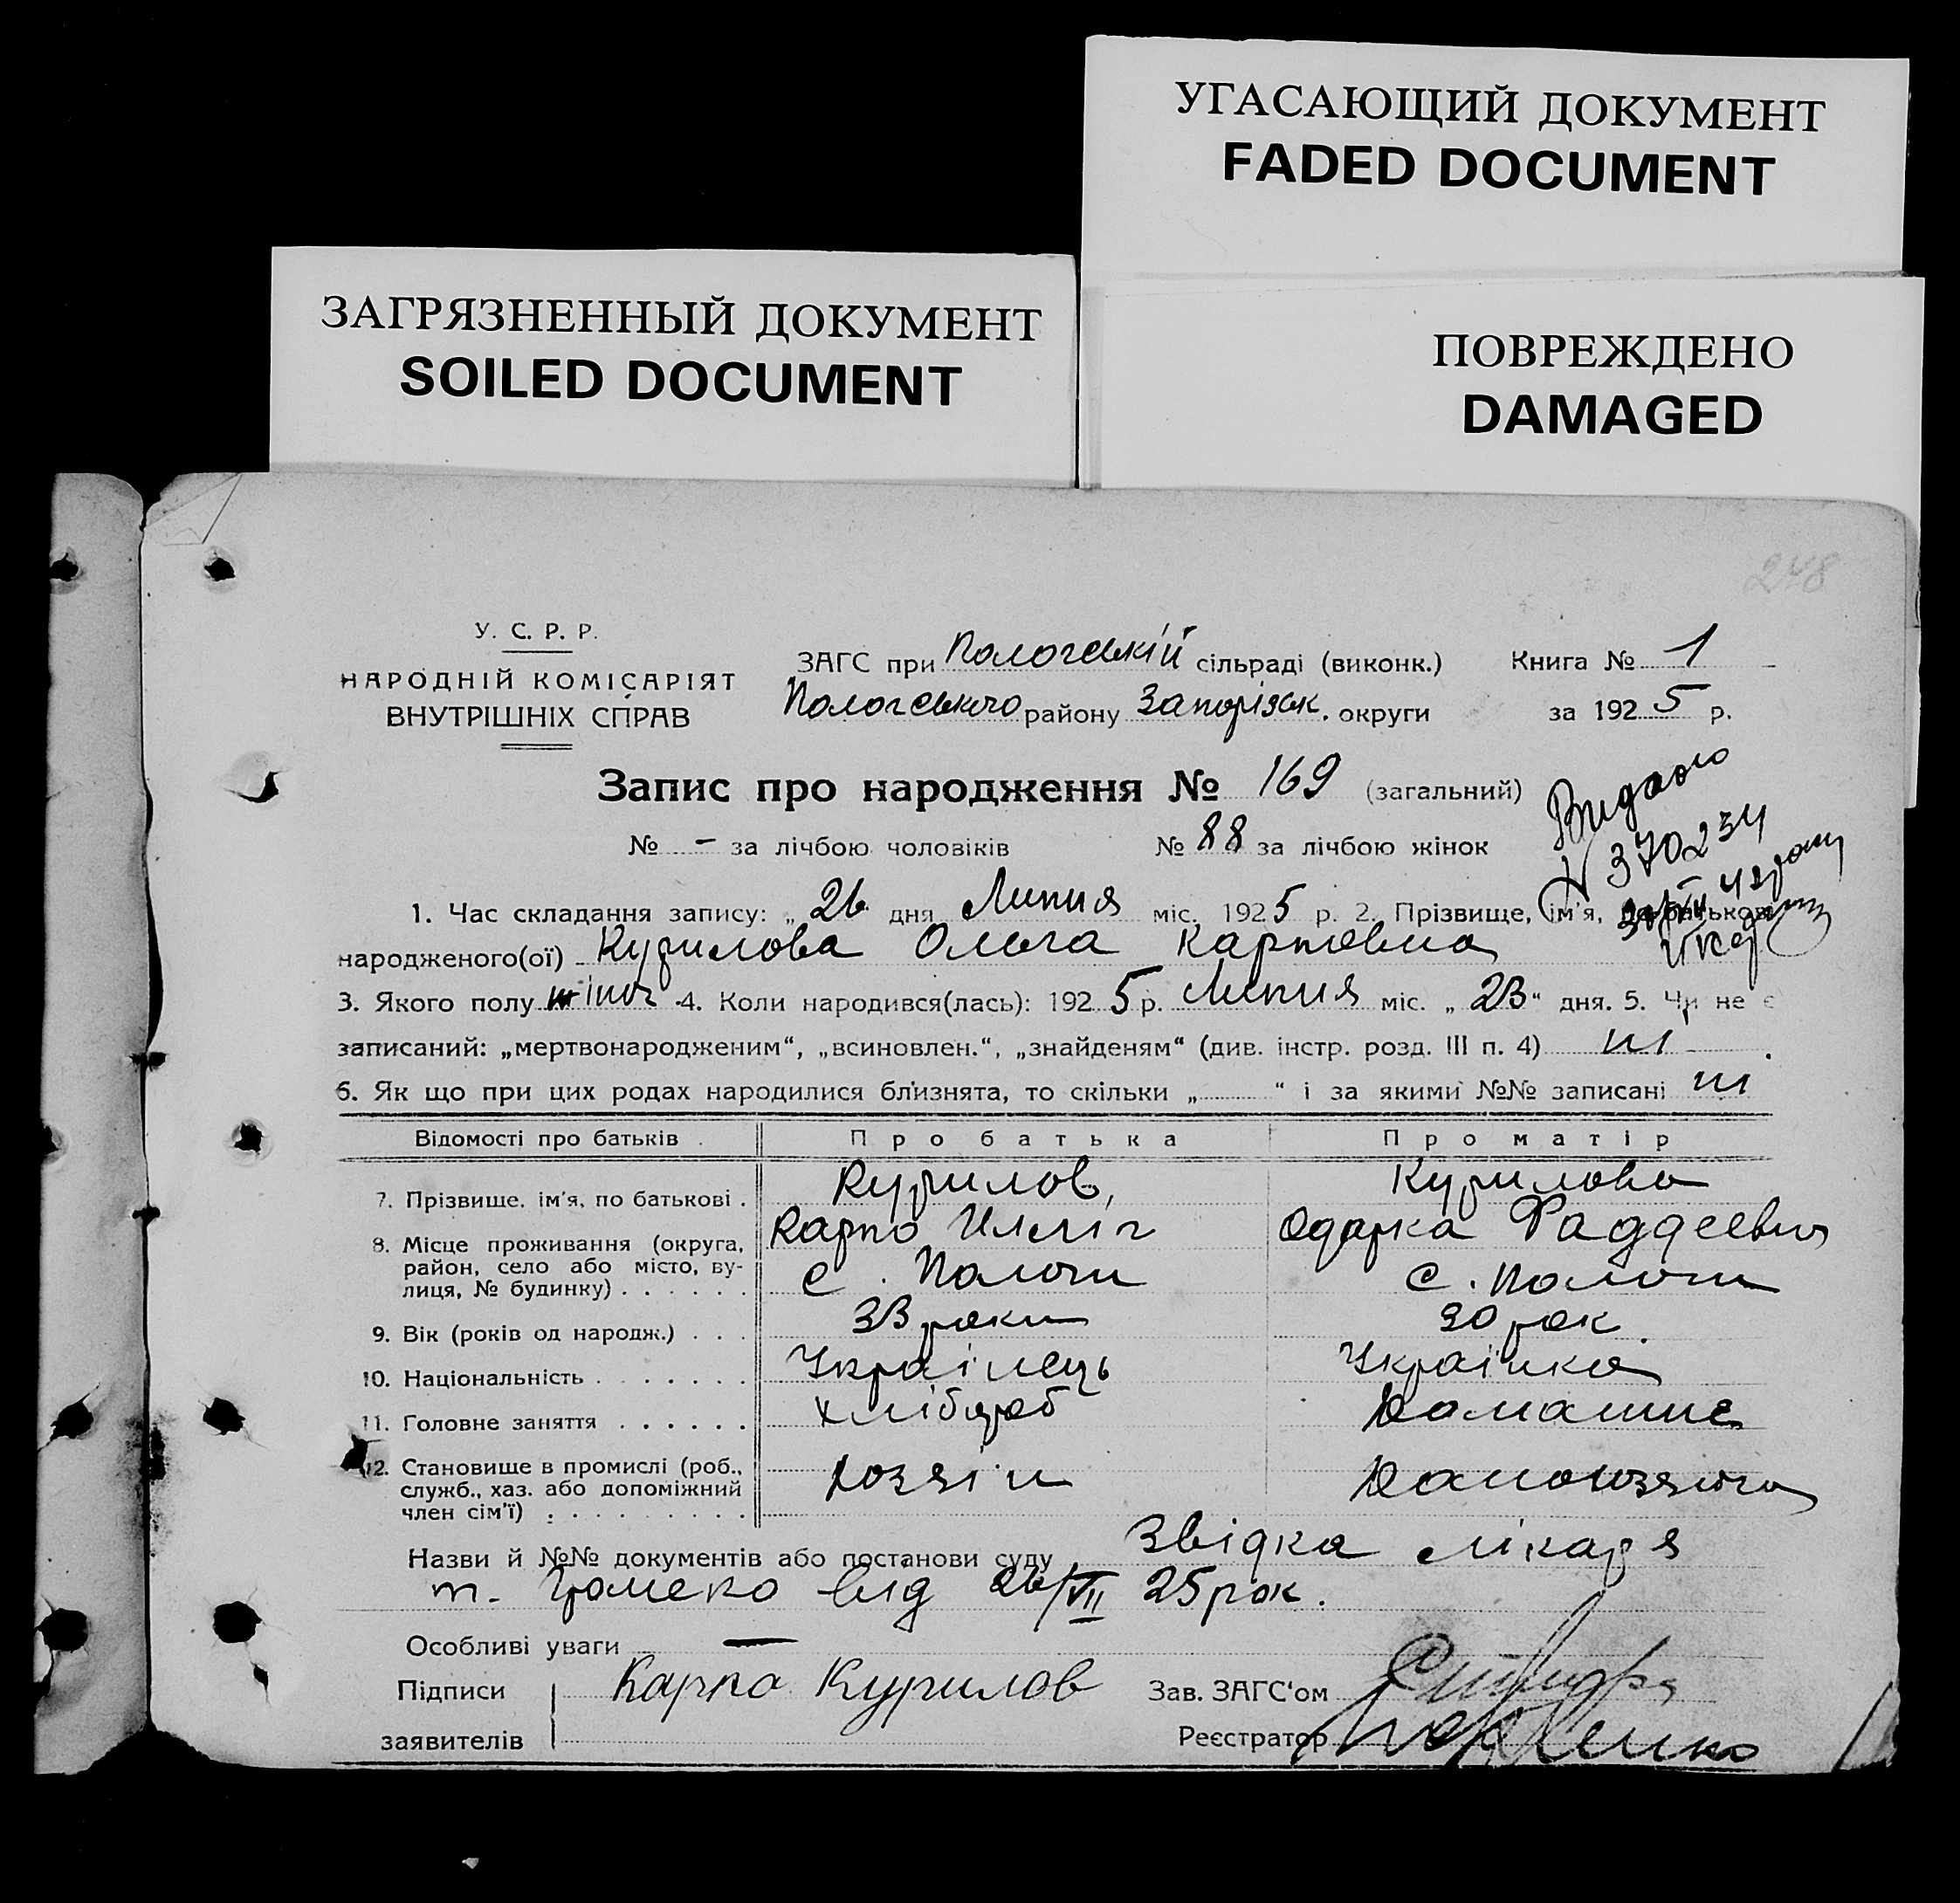 УГАСАЮЩИЙ ДОКУМЕНТ
FADED DOCUMENT
ЗАГРЯЗНЕННЫЙ ДОКУМЕНТ
SOILED DOCUMENT
ПОВРЕЖДЕНО
DAMAGED
248
У. С. Р. Р.
НАРОДНІЙ КОМІСАРІЯТ
ВНУТРІШНІХ СПРАВ
ЗАГС при Пологській сільраді (виконк.) Книга № 1
Пологського району Запорізьк. округи за 1925 р.
Запис про народження № 169 (загальний)
№ - за лічбою чоловіків № 88 за лічбою жінок
Видано
N 370234
1. Час складання запису: „26 дня Липня міс. 1925 р. 2. Прізвище, ім'я, по батькові
народженого(ої) Курилова Ольга Карповна
3. Якого полу жіноч. 4. Коли народився(лась): 1925 р. Липня міс. „23“ дня. 5. Чи не є
записаний: „мертвонародженим“, „всиновлен.“, „знайденям“ (див. інстр. розд. III п. 4) ні
6. Як що при цих родах народилися близнята, то скільки „ “ і за якими №№ записані ні
Відомості про батьків Про батька Про матір
7. Прізвище, ім'я, по батькові. Курилов, Карпо Ілліч Курилова Одарка Фаддеевна
8. Місце проживання (округа, район, село або місто, вулиця, № будинку) с. Пологи с. Пологи
9. Вік (років од народж.) 33 роки 30 рок.
10. Національність Українець Українка
11. Головне заняття хлібороб Домашнє
12. Становище в промислі (роб., служб., хаз. або допоміжний член сім'ї) хоззяін Домохозяйка
Назви й №№ документів або постанови суду Звідка лікаря
т. Громеко від 26/VII 25 рок.
Особливі уваги —
Підписи Карпо Курилов Зав. ЗАГС'ом
заявителів Реєстратор